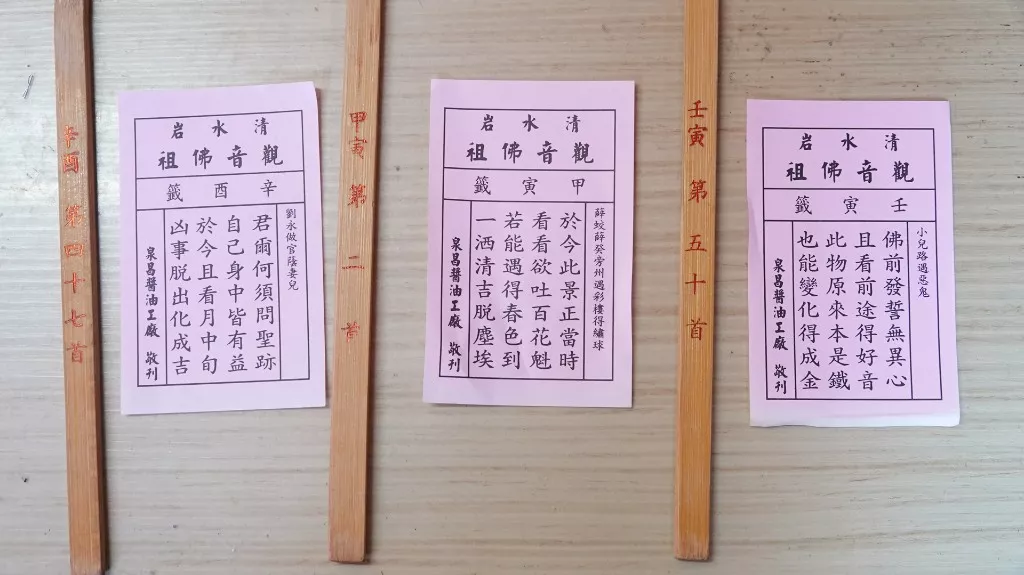 辛酉第四十七首
清水岩
觀音佛祖
辛酉籤
劉永做官蔭妻兒
君爾何須問聖跡
自己身中皆有益
於今且看月中旬
凶事脱出化成吉
泉昌醬油工廠 敬刊
甲寅第二首
清水岩
觀音佛祖
甲寅籤
薛蛟薛葵旁州遇彩樓得繡球
於今此景正當時
看看欲吐百花魁
若能遇得春色到
一洒清吉脱塵埃
泉昌醬油工廠 敬刊
壬寅第五十首
清水岩
觀音佛祖
壬寅籤
小兒路遇惡鬼
佛前發誓無異心
且看前途得好音
此物原來本是鐵
也能變化得成金
泉昌醬油工廠 敬刊